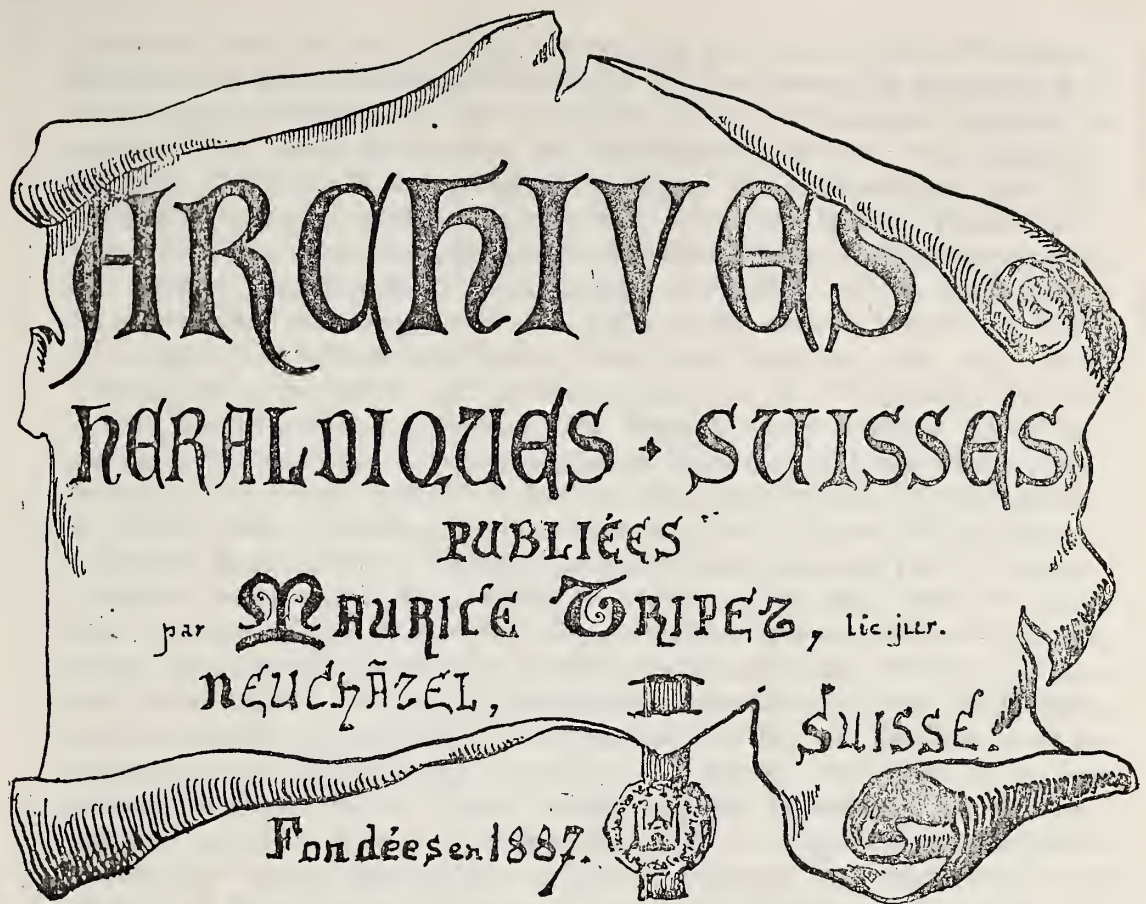 ARCHIVES
HERALDIQUES · SUISSES
PUBLIÉES
par MAURICE TRIPET, lic. jur.
NEUCHÂTEL, SUISSE.
Fondées en 1887.